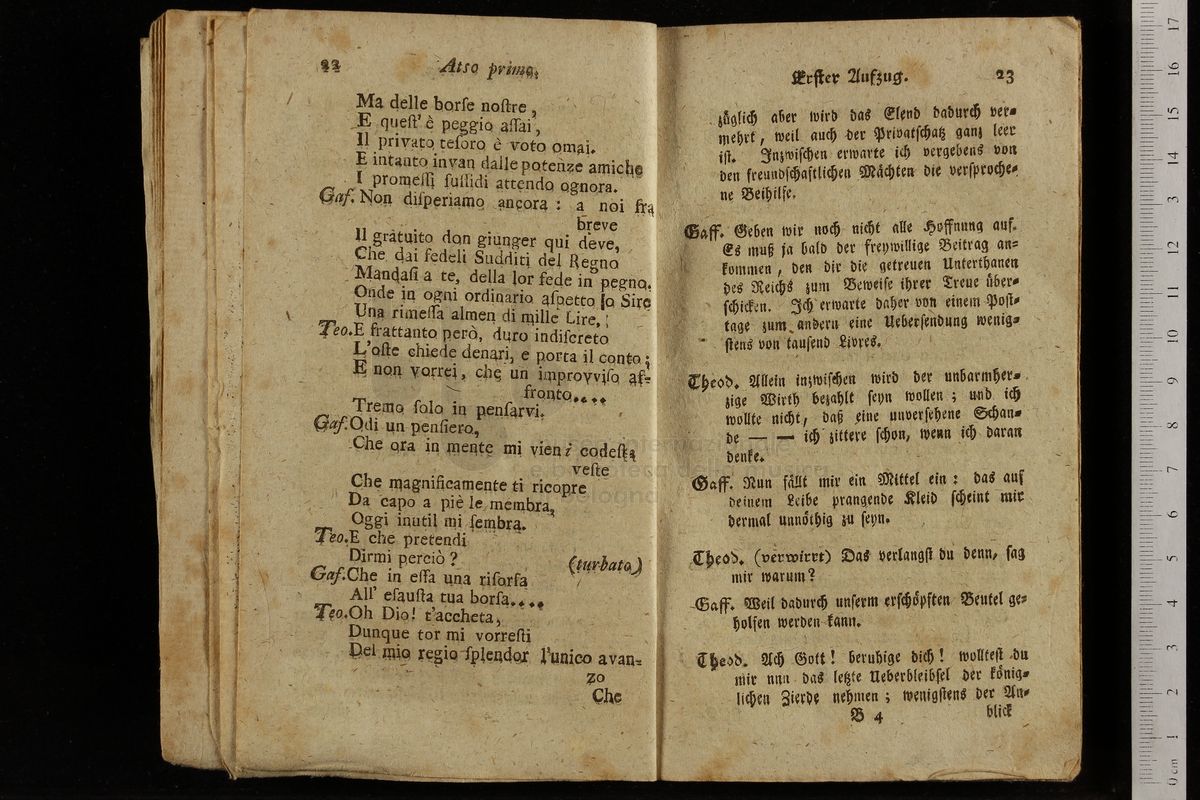 22 Atso primo.
Ma delle borſe noſtre,
E queſt' è peggio aſſai,
Il privato teſoro è voto omai.
E intanto invan dalle potenze amiche
I promeſſi ſuſſidi attendo ognora.
Gaf. Non diſperiamo ancora : a noi fra
breve
Il gratuito don giunger qui deve,
Che dai fedeli Sudditi del Regno
Mandaſi a te, della lor fede in pegno.
Onde in ogni ordinario aſpetto ſo Sire
Una rimeſſa almen di mille Lire,
Teo. E frattanto però, duro indiſcreto
L'oſte chiede denari, e porta il conto;
E non vorrei, che un improvviſo af-
fronto....
Tremo ſolo in penſarvi.
Gaf. Odi un penſiero,
Che ora in mente mi viene codeſta
veſte
Che magnificamente ti ricopre
Da capo a piè le membra,
Oggi inutil mi ſembra.
Teo. E che pretendi
Dirmi perciò? (turbato)
Gaf. Che in eſſa una riſorſa
All' eſauſta tua borſa....
Teo. Oh Dio! t'accheta,
Dunque tor mi vorreſti
Del mio regio ſplendor l'unico avan-
zo
Che
Erſter Aufzug. 23
züglich aber wird das Elend dadurch ver-
mehrt, weil auch der Privatſchatz ganz leer
iſt. Inzwiſchen erwarte ich vergebens von
den freundſchaftlichen Mächten die verſproche-
ne Beihilfe.
Gaff. Geben wir noch nicht alle Hoffnung auf.
Es muß ja bald der freywillige Beitrag an-
kommen, den dir die getreuen Unterthanen
des Reichs zum Beweiſe ihrer Treue über-
ſchicken. Ich erwarte daher von einem Poſt-
tage zum andern eine Ueberſendung wenig-
ſtens von tauſend Livres.
Theod. Allein inzwiſchen wird der unbarmher-
zige Wirth bezahlt ſeyn wollen; und ich
wollte nicht, daß eine unverſehene Schan-
de — — ich zittere ſchon, wenn ich daran
denke.
Gaff. Nun fällt mir ein Mittel ein: das auf
deinem Leibe prangende Kleid ſcheint mir
dermal unnöthig zu ſeyn.
Theod. (verwirrt) Das verlangſt du denn, ſag
mir warum?
Gaff. Weil dadurch unſerm erſchöpften Beutel ge-
holfen werden kann.
Theod. Ach Gott! beruhige dich! wollteſt du
mir nun das letzte Ueberbleibſel der könig-
lichen Zierde nehmen; wenigſtens der An-
B 4 blick
museo internazionale
e biblioteca della musica
Bologna